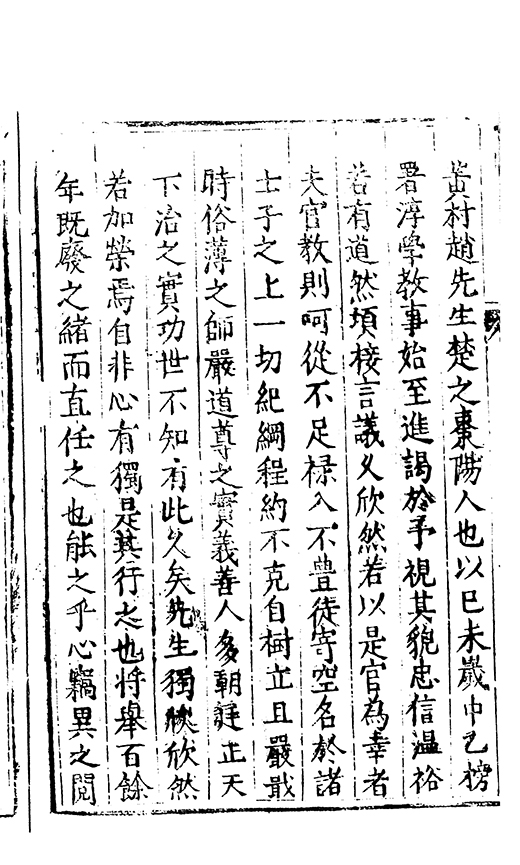 黃村趙先生楚之棗陽人也以巳未歲中乙榜
署淳學教事始至進謁於予視其貌忠信溫裕
若有道然頃接言議乂欣然若以是官為幸者
夫官教則呵從不足祿入不豊徒寄空名於諸
士子之上一切紀綱程約不克自樹立且嚴戢
時俗薄之師嚴道尊之實義善人多朝廷正天
下治之實功世不知有此久矣先生獨欣然
若加榮焉自非心有獨是其行之也將舉百餘
年既廢之緒而直任之也能之乎心竊異之閱